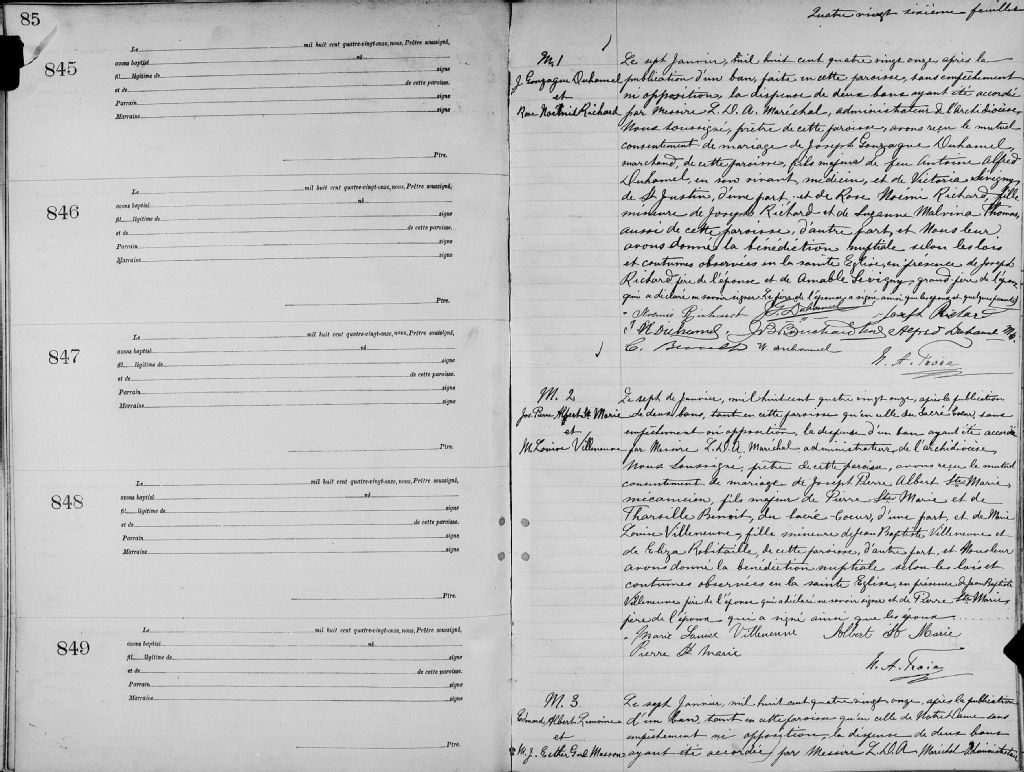 85
845
Le mil huit cent quatre-vingt-onze, nous, Prêtre soussigné,
avons baptisé né
fil légitime de signe
et de de cette paroisse.
Parrain signe
Marraine signe
Ptre.
846
Le mil huit cent quatre-vingt-onze, nous, Prêtre soussigné,
avons baptisé né
fil légitime de signe
et de de cette paroisse.
Parrain signe
Marraine signe
Ptre.
847
Le mil huit cent quatre-vingt-onze, nous, Prêtre soussigné,
avons baptisé né
fil légitime de signe
et de de cette paroisse.
Parrain signe
Marraine signe
Ptre.
848
Le mil huit cent quatre-vingt-onze, nous, Prêtre soussigné,
avons baptisé né
fil légitime de signe
et de de cette paroisse.
Parrain signe
Marraine signe
Ptre.
849
Le mil huit cent quatre-vingt-onze, nous, Prêtre soussigné,
avons baptisé né
fil légitime de signe
et de de cette paroisse.
Parrain signe
Marraine signe
Ptre.
Quatre vingt sixième feuillet
M. 1
J. Gonzague Duhamel
et
Rose Noémi Richard
Le sept Janvier, mil huit cent quatre vingt onze, après la
publication d'un ban, faite en cette paroisse, sans empêchement
ni opposition, la dispense de deux bans ayant été accordée
par Messire L. D. A. Maréchal, administrateur de l'Archidiocèse,
Nous soussigné, prêtre de cette paroisse, avons reçu le mutuel
consentement de mariage de Joseph Gonzague Duhamel,
marchand, de cette paroisse, fils majeur de feu Antoine Alfred
Duhamel, en son vivant, médecin, et de Victoria Sévigny,
de St Justin, d'une part, et de Rose Noémi Richard, fille
mineure de Joseph Richard et de Suzanne Malvina Thomas,
aussi de cette paroisse, d'autre part, et Nous leur
avons donné la bénédiction nuptiale selon les lois
et coutumes observées en la sainte Eglise, en présence de Joseph
Richard, père de l'épouse et de Amable Sévigny, grand père de l'époux
qui a déclaré ne savoir signer. Le père de l'épouse a signé ainsi que les époux et quelques parents
Noémie Richard J. G. Duhamel Joseph Richard
Duhamel Alfred Duhamel
W. Duhamel
E. A. Troie
M. 2
Jos. Pierre Albert Ste Marie
et
M. Louise Villeneuve
Le sept de Janvier, mil huit cent quatre vingt onze, après la publication
de deux bans, tant en cette paroisse qu'en celle du Sacré Coeur, sans
empêchement ni opposition, la dispense d'un ban ayant été accordée
par Messire L. D. A. Maréchal, administrateur de l'archidiocèse,
Nous Soussigné, prêtre de cette paroisse, avons reçu le mutuel
consentement de mariage de Joseph Pierre Albert Ste Marie,
mécanicien, fils majeur de Pierre Ste Marie et de
Tharsille Benoit, du Sacré-Coeur, d'une part, et de Marie
Louise Villeneuve, fille mineure de Jean Baptiste Villeneuve et
de Eliza Robitaille, de cette paroisse, d'autre part, et Nous leur
avons donné la bénédiction nuptiale selon les lois et
coutumes observées en la sainte Eglise, en présence de Jean Baptiste
Villeneuve père de l'épouse qui a déclaré ne savoir signer et de Pierre Ste Marie
père de l'époux qui a signé ainsi que les époux
Marie Louise Villeneuve Albert St Marie
Pierre St Marie
E. A. Troie
M. 3
Edmond Albert
et
M. J. Esther Masson
Le sept Janvier, mil huit cent quatre vingt onze, après la publication
d'un ban, tant en cette paroisse qu'en celle de Notre Dame sans
empêchement ni opposition, la dispense de deux bans
ayant été accordée par Messire L. D. A. Maréchal Administrateur